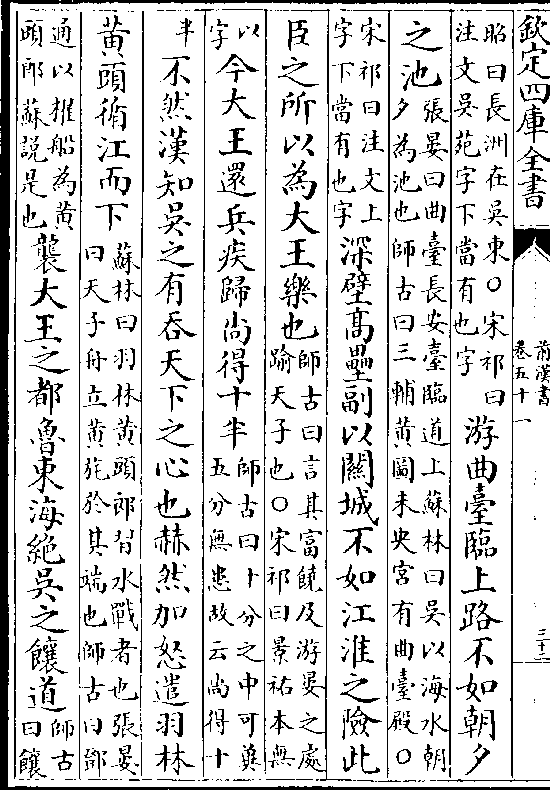 欽定四庫全書
前漢書
卷五十一
三十二
昭曰長洲在吳東○宋祁曰
注文吳苑字下當有也字
游曲臺臨上路不如朝夕
之池
張晏曰曲臺長安臺臨道上蘇林曰吳以海水朝
夕為池也師古曰三輔黃圖未央宮有曲臺殿○
宋祁曰注文上
字下當有也字
深壁髙壘副以關城不如江淮之險此
臣之所以為大王樂也
師古曰言其富饒及游晏之處
踰天子也○宋祁曰景祐本無
以
字
今大王還兵疾歸尚得十半
師古曰十分之中可冀
五分無患故云尚得十
半
不然漢知吳之有吞天下之心也赫然加怒遣羽林
黃頭循江而下
蘇林曰羽林黃頭郎習水戰者也張晏
曰天子舟立黃旄於其端也師古曰鄧
通以櫂船為黃
頭郎蘇說是也
襲大王之都魯東海絶吳之饟道
師古
曰饟